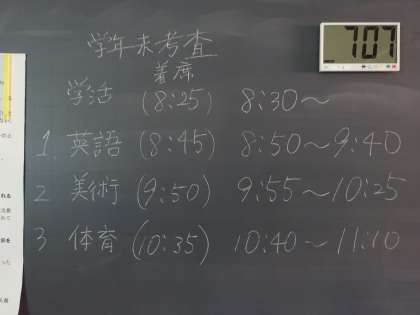 学年末考査
7:07
着席
学活 (8:25) 8:30～
1. 英語 (8:45) 8:50～9:40
2. 美術 (9:50) 9:55～10:25
3 体育 (10:35) 10:40～11:10